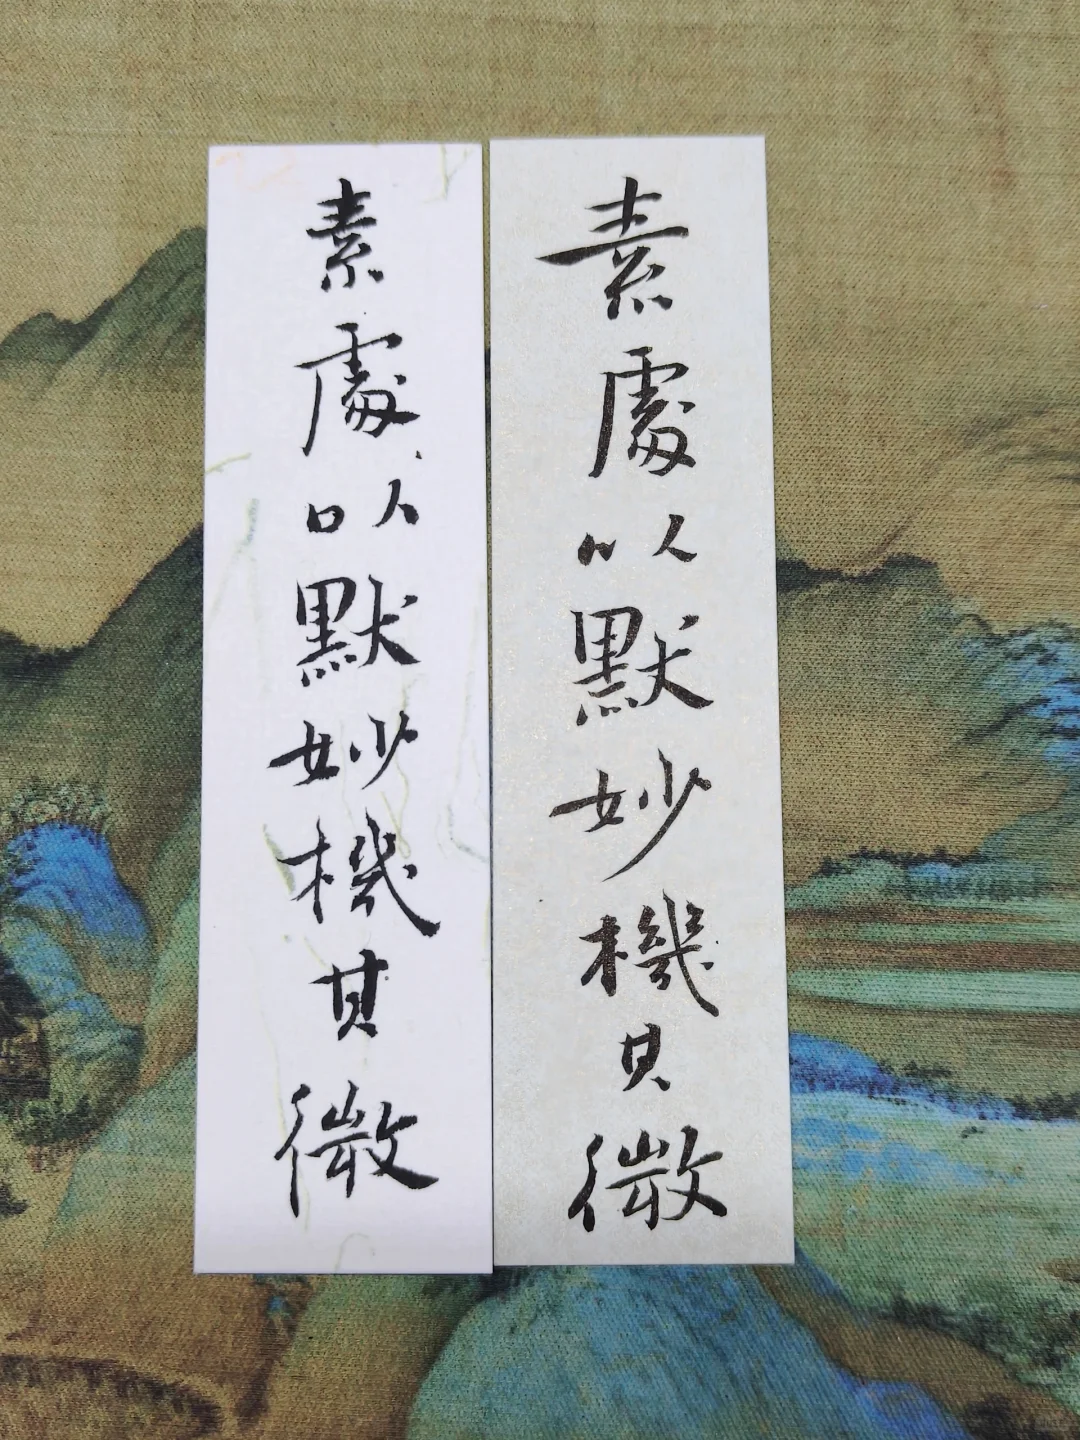 素處以默妙機其微
素處以默妙機其微